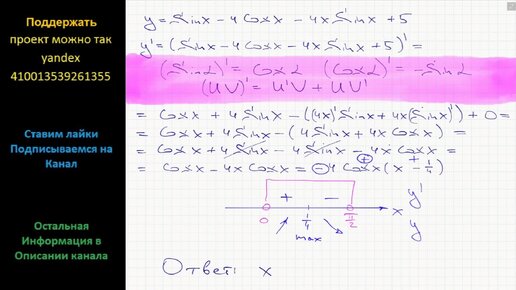 Поддержать
проект можно так
yandex
410013539261355
Ставим лайки
Подписываемся на
Канал
Остальная
Информация в
Описании канала
y = Sinx - 4Cosx - 4xSinx + 5
y' = (Sinx - 4Cosx - 4xSinx + 5)' =
(Sinα)' = Cosα (Cosα)' = -Sinα
(UV)' = U'V + UV'
= Cosx + 4Sinx - ((4x)'Sinx + 4x(Sinx)') + 0 =
= Cosx + 4Sinx - (4Sinx + 4xCosx) =
= Cosx + 4Sinx - 4Sinx - 4xCosx =
= Cosx - 4xCosx = -4Cosx(x - 1/4)
+ +
+ - y'
0 1/4 π/2 x y
max
Ответ: x